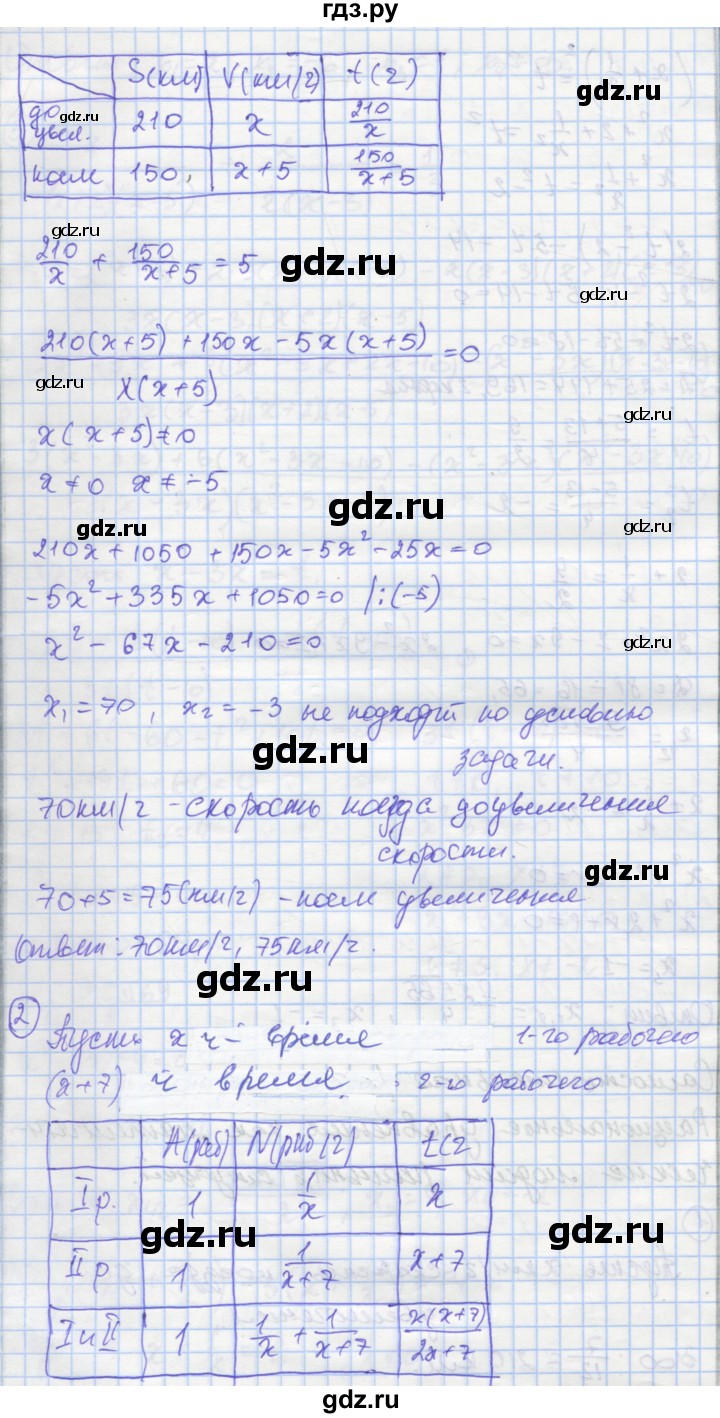 гдз.ру
S(км) V(км/ч) t(ч)
до увел. 210 x 210/x
нам 150 x+5 150/(x+5)
gdz.ru
210/x + 150/(x+5) = 5
(210(x+5) + 150x - 5x(x+5))/(x(x+5)) = 0
x(x+5)≠0
x≠0 x≠-5
210x + 1050 + 150x - 5x² - 25x = 0
-5x² + 335x + 1050 = 0 /:(-5)
x² - 67x - 210 = 0
x₁ = 70, x₂ = -3 не подходит по условию
задачи.
70км/ч - скорость поезда до увеличения
скорости.
70+5=75(км/ч) - после увеличения
Ответ: 70км/ч, 75км/ч.
2
Пусть x ч - время 1-го рабочего
(x+7) ч время 2-го рабочего
A(раб) N(раб/ч) t(ч
I р. 1 1/x x
II р 1 1/(x+7) x+7
I и II 1 1/x + 1/(x+7) x(x+7)/(2x+7)
gdz.ru